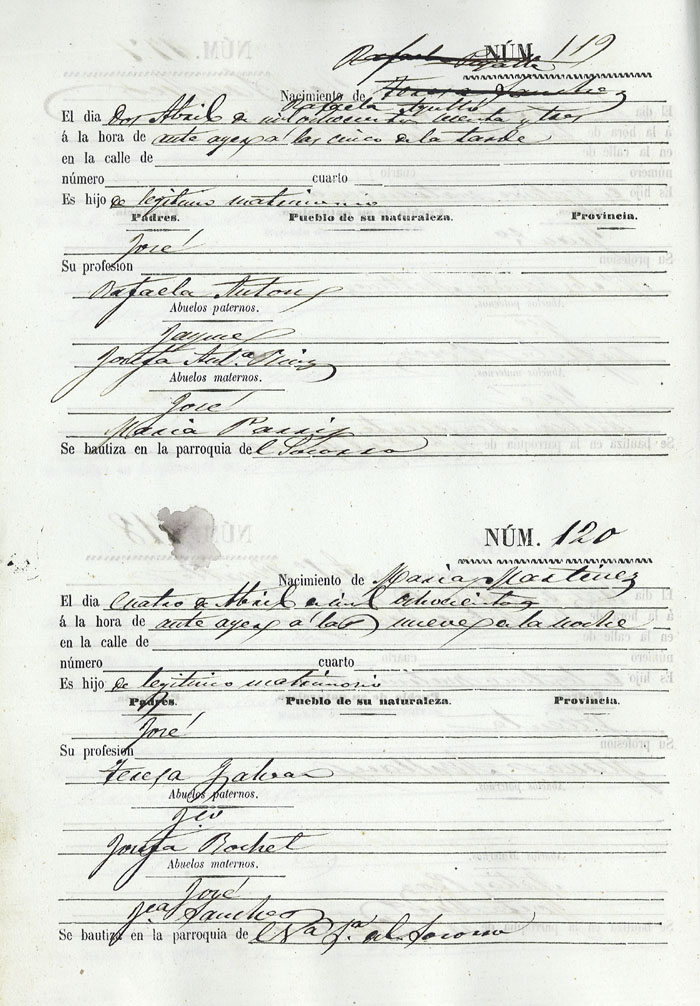 NÚM. 119
Nacimiento de Teresa Sanchez
Rafaela
El dia Dos Abril de mil ochocientos y tres
á la hora de ante ayer á las cinco de la tarde
en la calle de
número cuarto
Es hijo de legitimo matrimonio
Padres. Pueblo de su naturaleza. Provincia.
José
Su profesion
Rafaela Anton
Abuelos paternos.
Jayme
Josefa Antª
Abuelos maternos.
José
Maria
Se bautiza en la parroquia del Socorro
NÚM. 120
Nacimiento de Maria Martinez
El dia cuatro de Abril de mil ochocientos
á la hora de ante ayer á las nueve de la noche
en la calle de
número cuarto
Es hijo de legitimo matrimonio
Padres. Pueblo de su naturaleza. Provincia.
José
Su profesion
Teresa Galvan
Abuelos paternos.
Josefa Rochel
Abuelos maternos.
José
Sanchez
Se bautiza en la parroquia de Nª Sª del Socorro